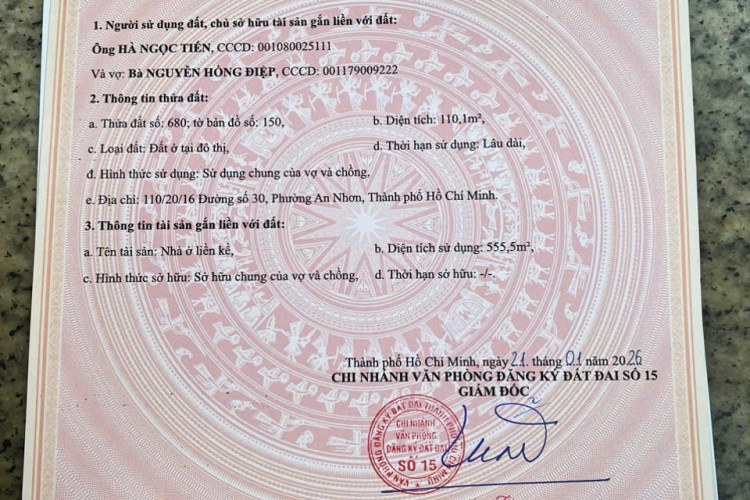 1. Người sử dụng đất, chủ sở hữu tài sản gắn liền với đất:
Ông HÀ NGỌC TIẾN, CCCD: 001080025111
Và vợ: Bà NGUYỄN HỒNG ĐIỆP, CCCD: 001179009222
2. Thông tin thửa đất:
a. Thửa đất số: 680; tờ bản đồ số: 150, b. Diện tích: 110,1m²,
c. Loại đất: Đất ở tại đô thị, d. Thời hạn sử dụng: Lâu dài,
đ. Hình thức sử dụng: Sử dụng chung của vợ và chồng,
e. Địa chỉ: 110/20/16 Đường số 30, Phường An Nhơn, Thành phố Hồ Chí Minh.
3. Thông tin tài sản gắn liền với đất:
a. Tên tài sản: Nhà ở liền kề, b. Diện tích sử dụng: 555,5m²,
c. Hình thức sở hữu: Sở hữu chung của vợ và chồng, d. Thời hạn sở hữu: -/-.
Thành phố Hồ Chí Minh, ngày 21 tháng 01 năm 2026
CHI NHÁNH VĂN PHÒNG ĐĂNG KÝ ĐẤT ĐAI SỐ 15
GIÁM ĐỐC
VĂN PHÒNG ĐĂNG KÝ ĐẤT ĐAI THÀNH PHỐ HỒ CHÍ MINH
CHI NHÁNH
VĂN PHÒNG
ĐĂNG KÝ ĐẤT ĐAI
SỐ 15